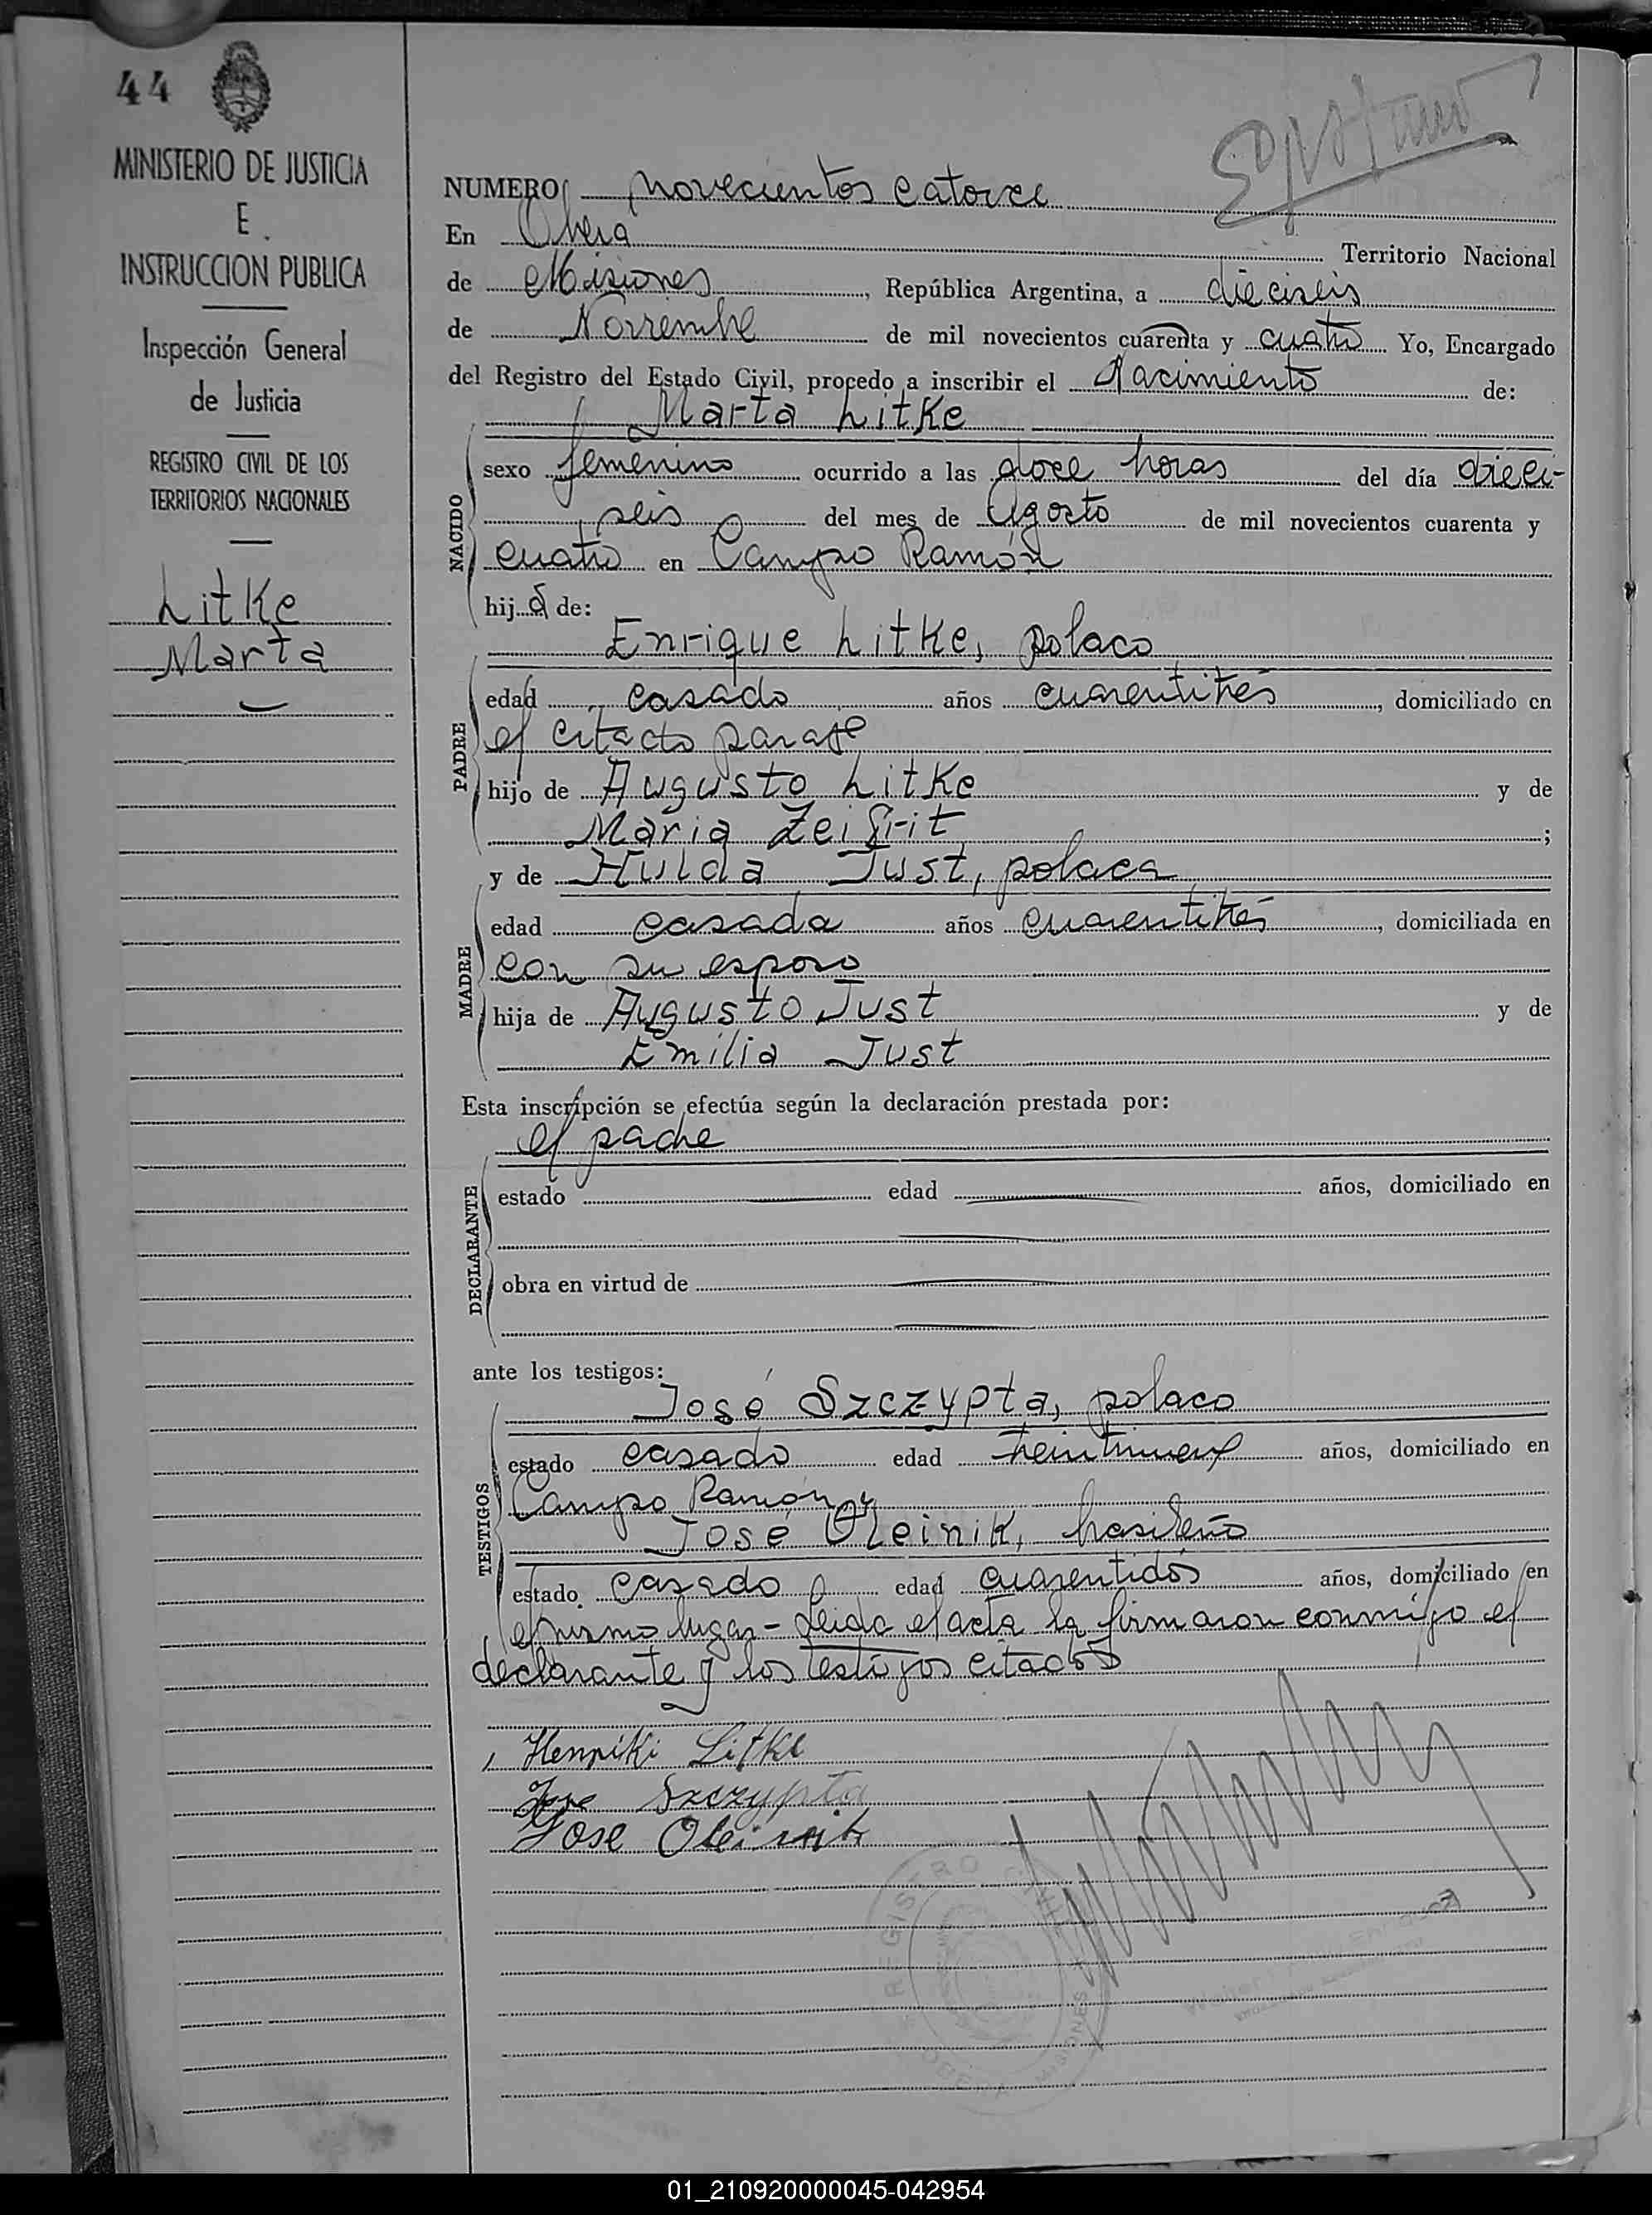 44
MINISTERIO DE JUSTICIA
E
INSTRUCCION PUBLICA
Inspección General
de Justicia
REGISTRO CIVIL DE LOS
TERRITORIOS NACIONALES
Litke
Marta
NUMERO novecientos catorce
En Oberá Territorio Nacional
de Misiones, República Argentina, a dieciseis
de Noviembre de mil novecientos cuarenta y cuatro Yo, Encargado
del Registro del Estado Civil, procedo a inscribir el Nacimiento de:
Marta Litke
NACIDO
sexo femenino ocurrido a las doce horas del día dieci-
seis del mes de Agosto de mil novecientos cuarenta y
cuatro en Campo Ramón
hija de:
Enrique Litke, polaco
PADRE
edad casado años cuarentitrés, domiciliado en
el citado paraje
hijo de Augusto Litke y de
María Zeifrit;
y de Hulda Just, polaca
MADRE
edad casada años cuarentitrés, domiciliada en
con su esposo
hija de Augusto Just y de
Emilia Just
Esta inscripción se efectúa según la declaración prestada por:
el padre
DECLARANTE
estado edad años, domiciliado en
obra en virtud de
ante los testigos:
José Szczypta, polaco
TESTIGOS
estado casado edad treintinueve años, domiciliado en
Campo Ramón y
José Oleinik, brasileño
estado casado edad cuarentidós años, domiciliado en
el mismo lugar - Leida el acta la firmaron conmigo el
declarante y los testigos citados
Henriki Litke
Jose Szczypta
Jose Oleinik
REGISTRO CIVIL
OBERA MISIONES
01_210920000045-042954